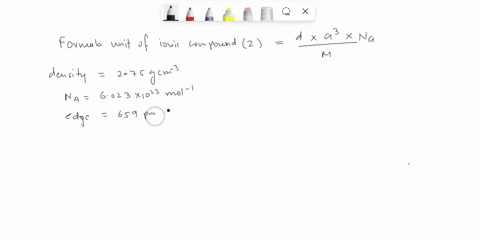 Formula unit of ionic compound (2) = d × a³ × Na / M
density = 2.75 g cm⁻³
NA = 6.023 × 10²³ mol⁻¹
edge = 659 pm